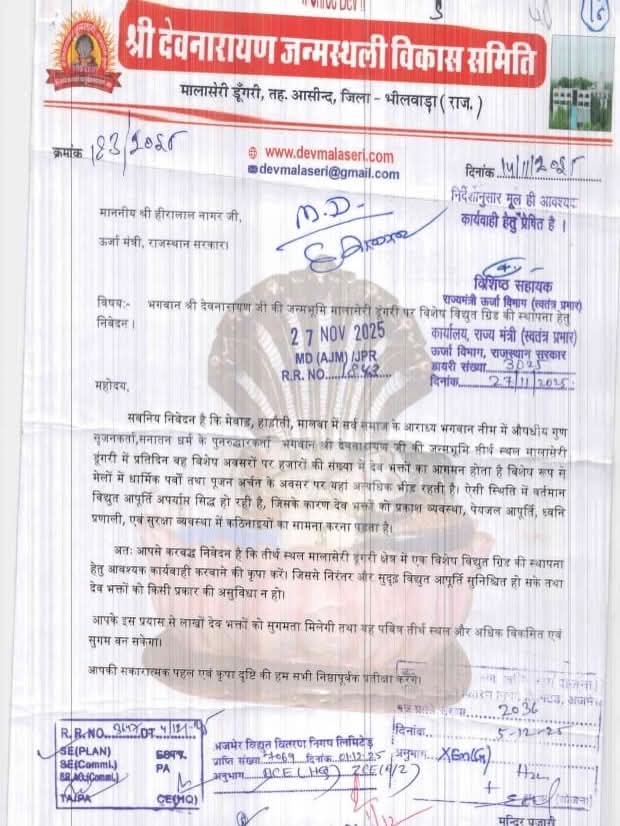 श्री देवनारायण जन्मस्थली विकास समिति
मालासेरी डूँगरी, तह. आसीन्द, जिला - भीलवाड़ा ( राज. )
क्रमांक 183/2025
www.devmalaseri.com
devmalaseri@gmail.com
दिनांक 14/11/2025
निर्देशानुसार मूल ही आवश्यक
कार्यवाही हेतु प्रेषित है ।
माननीय श्री हीरालाल नागर जी,
ऊर्जा मंत्री, राजस्थान सरकार।
M.D-
विशिष्ठ सहायक
राज्यमंत्री ऊर्जा विभाग (स्वतंत्र प्रभार)
विषयः- भगवान श्री देवनारायण जी की जन्मभूमि मालासेरी डूंगरी पर विशेष विद्युत ग्रिड की स्थापना हेतु
निवेदन।
27 NOV 2025
MD (AJM) /JPR
R.R. NO. 1843
कार्यालय, राज्य मंत्री (स्वतंत्र प्रभार)
ऊर्जा विभाग, राजस्थान सरकार
डायरी संख्या 3025
दिनांक 27/11/2025
महोदय,
सविनय निवेदन है कि मेवाड़, हाड़ौती, मालवा में सर्व समाज के आराध्य भगवान नीम में औषधीय गुण
सृजनकर्ता,सनातन धर्म के पुनरुद्धारकर्ता भगवान श्री देवनारायण जी की जन्मभूमि तीर्थ स्थल मालासेरी
डूंगरी में प्रतिदिन वह विशेष अवसरों पर हजारों की संख्या में देव भक्तों का आगमन होता है विशेष रूप से
मेलों में धार्मिक पर्वों तथा पूजन अर्चन के अवसर पर यहां अत्यधिक भीड़ रहती है। ऐसी स्थिति में वर्तमान
विद्युत आपूर्ति अपर्याप्त सिद्ध हो रही है, जिसके कारण देव भक्तों को प्रकाश व्यवस्था, पेयजल आपूर्ति, ध्वनि
प्रणाली, एवं सुरक्षा व्यवस्था में कठिनाइयों का सामना करना पड़ता है।
अतः आपसे करबद्ध निवेदन है कि तीर्थ स्थल मालासेरी डूंगरी क्षेत्र में एक विशेष विद्युत ग्रिड की स्थापना
हेतु आवश्यक कार्यवाही करवाने की कृपा करें। जिससे निरंतर और सुदृढ़ विद्युत आपूर्ति सुनिश्चित हो सके तथा
देव भक्तों को किसी प्रकार की असुविधा न हो।
आपके इस प्रयास से लाखों देव भक्तों को सुगमता मिलेगी तथा यह पवित्र तीर्थ स्थल और अधिक विकसित एवं
सुगम बन सकेगा।
आपकी सकारात्मक पहल एवं कृपा दृष्टि की हम सभी निष्ठापूर्वक प्रतीक्षा करेंगे।
2036
दिनांक 5-12-25
अनुभाग XEn
R.R. NO. DT.
SE(PLAN)
SE(Comml.) PA
SR.AO.(Comml.)
TA/PA CE(HQ)
अजमेर विद्युत वितरण निगम लिमिटेड
प्राप्ति संख्या 7069 दिनांक 01.12.25
अनुभाग ACE(HQ)
मन्दिर पुजारी